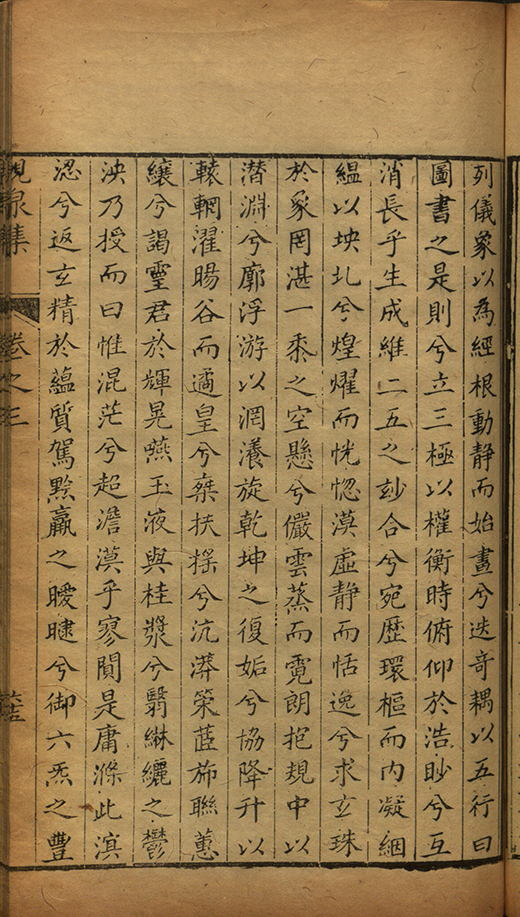 列儀象以為經根動静而始畫兮迭奇耦以五行曰
圖書之是則兮立三極以權衡時俯仰於浩眇兮互
消長乎生成維二五之玅合兮宛歷環樞而内凝絪
緼以坱圠兮煌燿而恍惚漠虚静而恬逸兮求玄珠
於象罔湛一黍之空懸兮儼雲蒸而霓朗抱規中以
潛淵兮廓浮游以罔瀁旋乾坤之復姤兮協降升以
轅輞濯暘谷而遹皇兮桀扶揺兮沆漭䇿葐斾聯蕙
纕兮謁靈君於輝晃燕玉液與桂漿兮翳綝纚之鬱
泱乃授而曰惟混茫兮超澹漠乎寥閴是庸滌此滇
涊兮返玄精於蘊質駕黔羸之曖曃兮御六炁之豐
峴泉集
卷之三